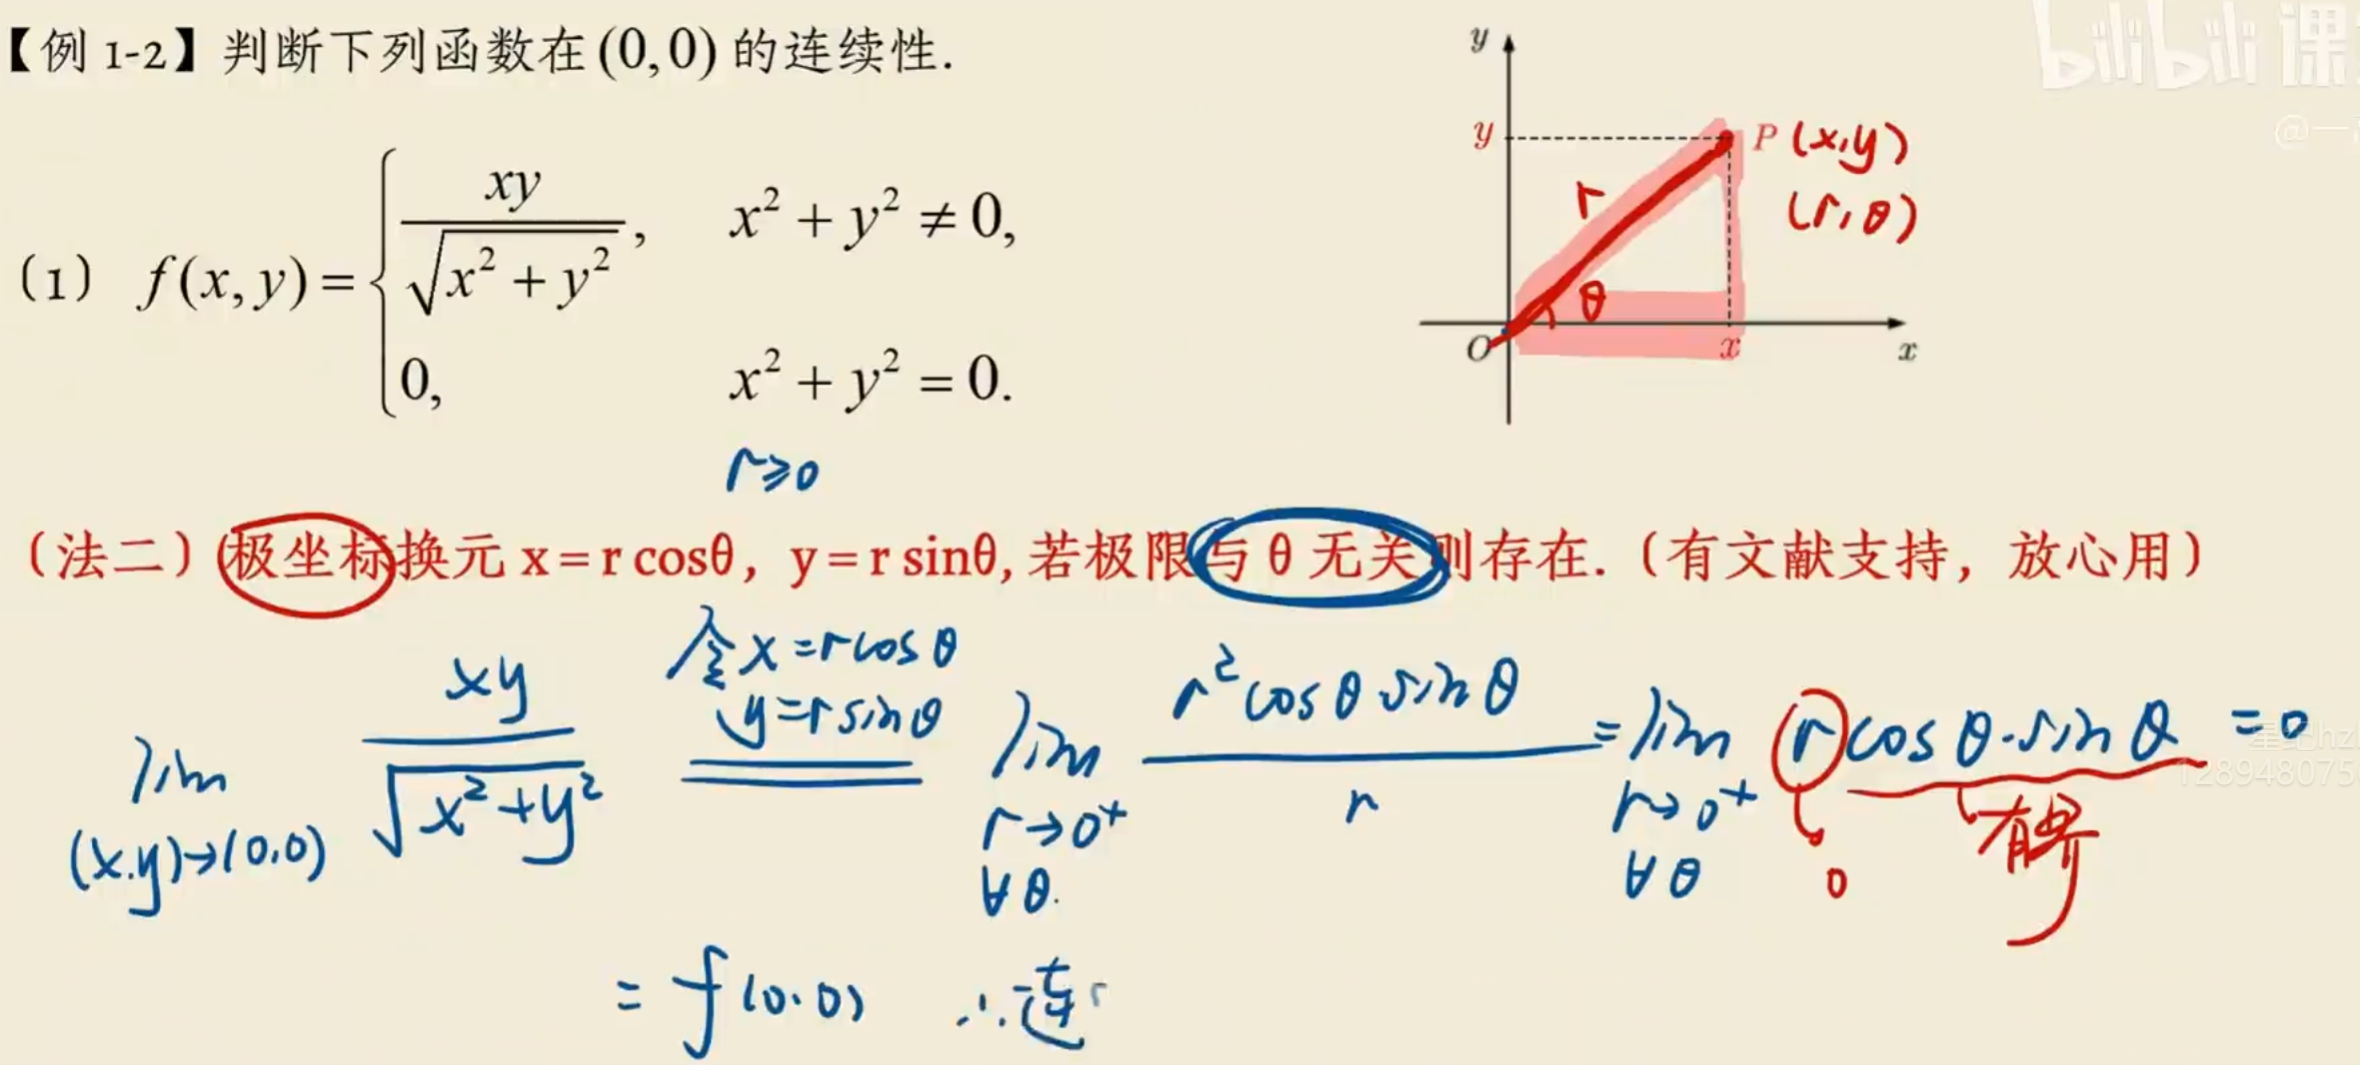 【例 1-2】判断下列函数在(0,0)的连续性.
bilibili 课
@一
(1) f(x,y)= { xy / √(x²+y²), x²+y²≠0,
0, x²+y²=0.
y
y P (x,y)
(r,θ)
r
θ
O x x
r≥0
(法二)极坐标换元 x=r cosθ, y=r sinθ,若极限与 θ 无关则存在.(有文献支持，放心用)
lim (x.y)→(0,0) xy / √(x²+y²) 令x=rcosθ y=rsinθ lim r→0⁺ ∀θ. r²cosθ·sinθ / r = lim r→0⁺ ∀θ r cosθ·sinθ = 0
0 有界
= f(0.0) ∴连